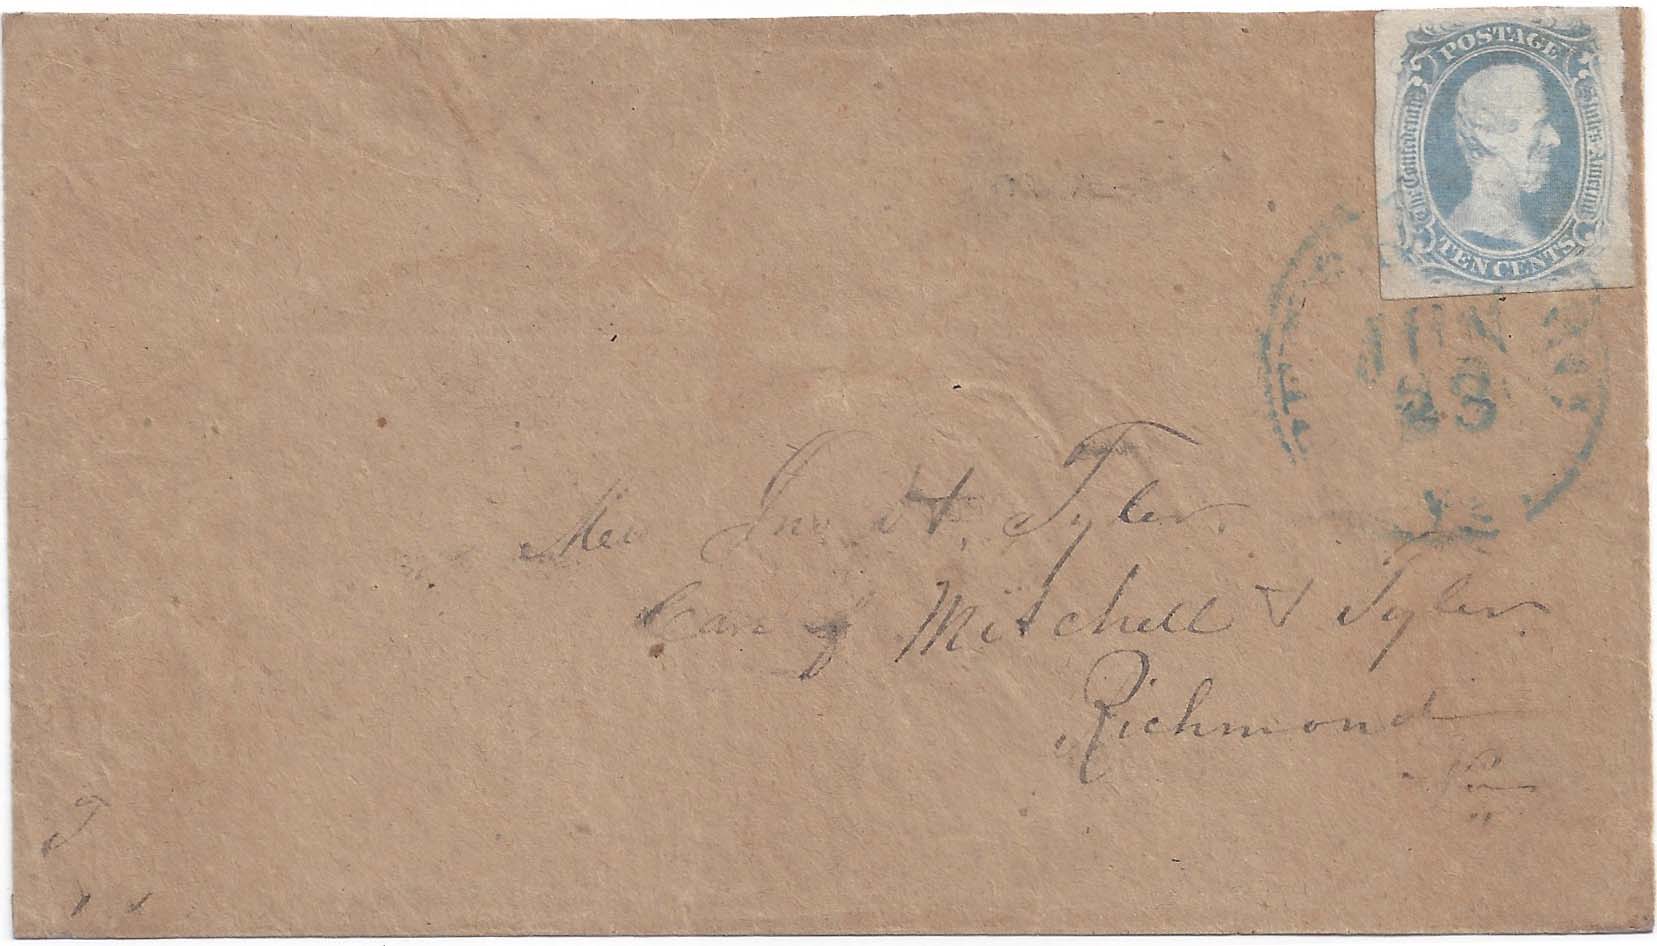 POSTAGE
The Confederate States America
TEN CENTS
JUN
23
Va
Jno H. Tyler.
Care of Mitchell & Tyler
Richmond
Va